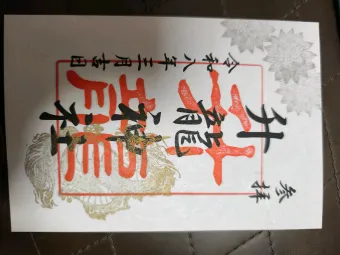 参拝
升龍神社
令和八年三月吉日